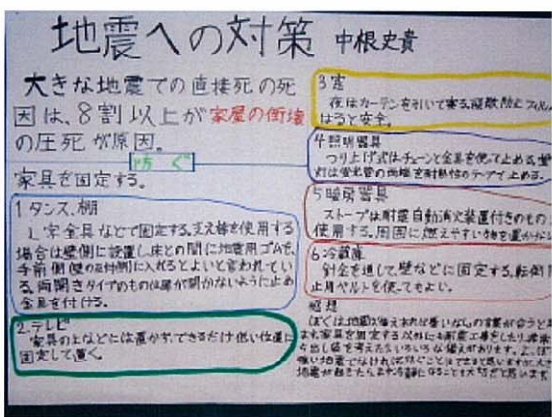 地震への対策 中根史貴
大きな地震での直接死の死
因は、8割以上が家屋の衝壊
の圧死が原因。
防ぐ
家具を固定する。
1 タンス、棚
L字金具などで固定する。支え棒を使用する
場合は壁側に設置し床との間に地震用ゴムを、
手前側に入れるとよいと言われてい
る。両開きタイプのものは扉が開かないように止め
金具を付ける。
2.テレビ
家具の上などには置かず、できるだけ低い位置に
固定して置く。
3 窓
夜はカーテンを引いて寝る。飛散防止フィルム
はると安全。
4 照明器具
つり上げ式はチェーンと金具を使って止める。蛍
灯は蛍光管の両端を耐熱性のテープで止める。
5 暖房器具
ストーブは耐震自動消火装置付きのもの
使用する。周囲に燃えやすい物を置かな
6 冷蔵庫
針金を通して、壁などに固定する。転倒
止用ベルトを使ってもよい。
感想
ぼくは、地震が
家具を固定する以外にも耐震工事をしたり、非常
出し袋を考えたらいろいろな備えがあります。
地震が起きたらまず冷静になることも大切だと思います